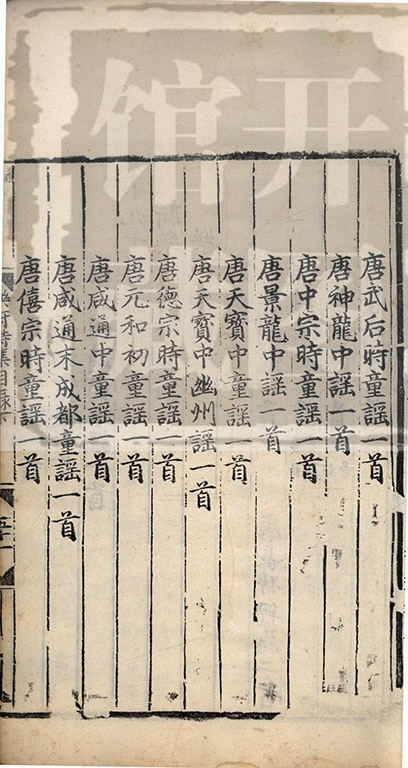 唐武后時童謡一首
唐神龍中謡一首
唐中宗時童謡一首
唐景龍中謡一首
唐天寳中童謡一首
唐天寳中幽州謡一首
唐德宗時童謡一首
唐元和初童謡一首
唐咸通中童謡一首
唐咸通末成都童謡一首
唐僖宗時童謡一首